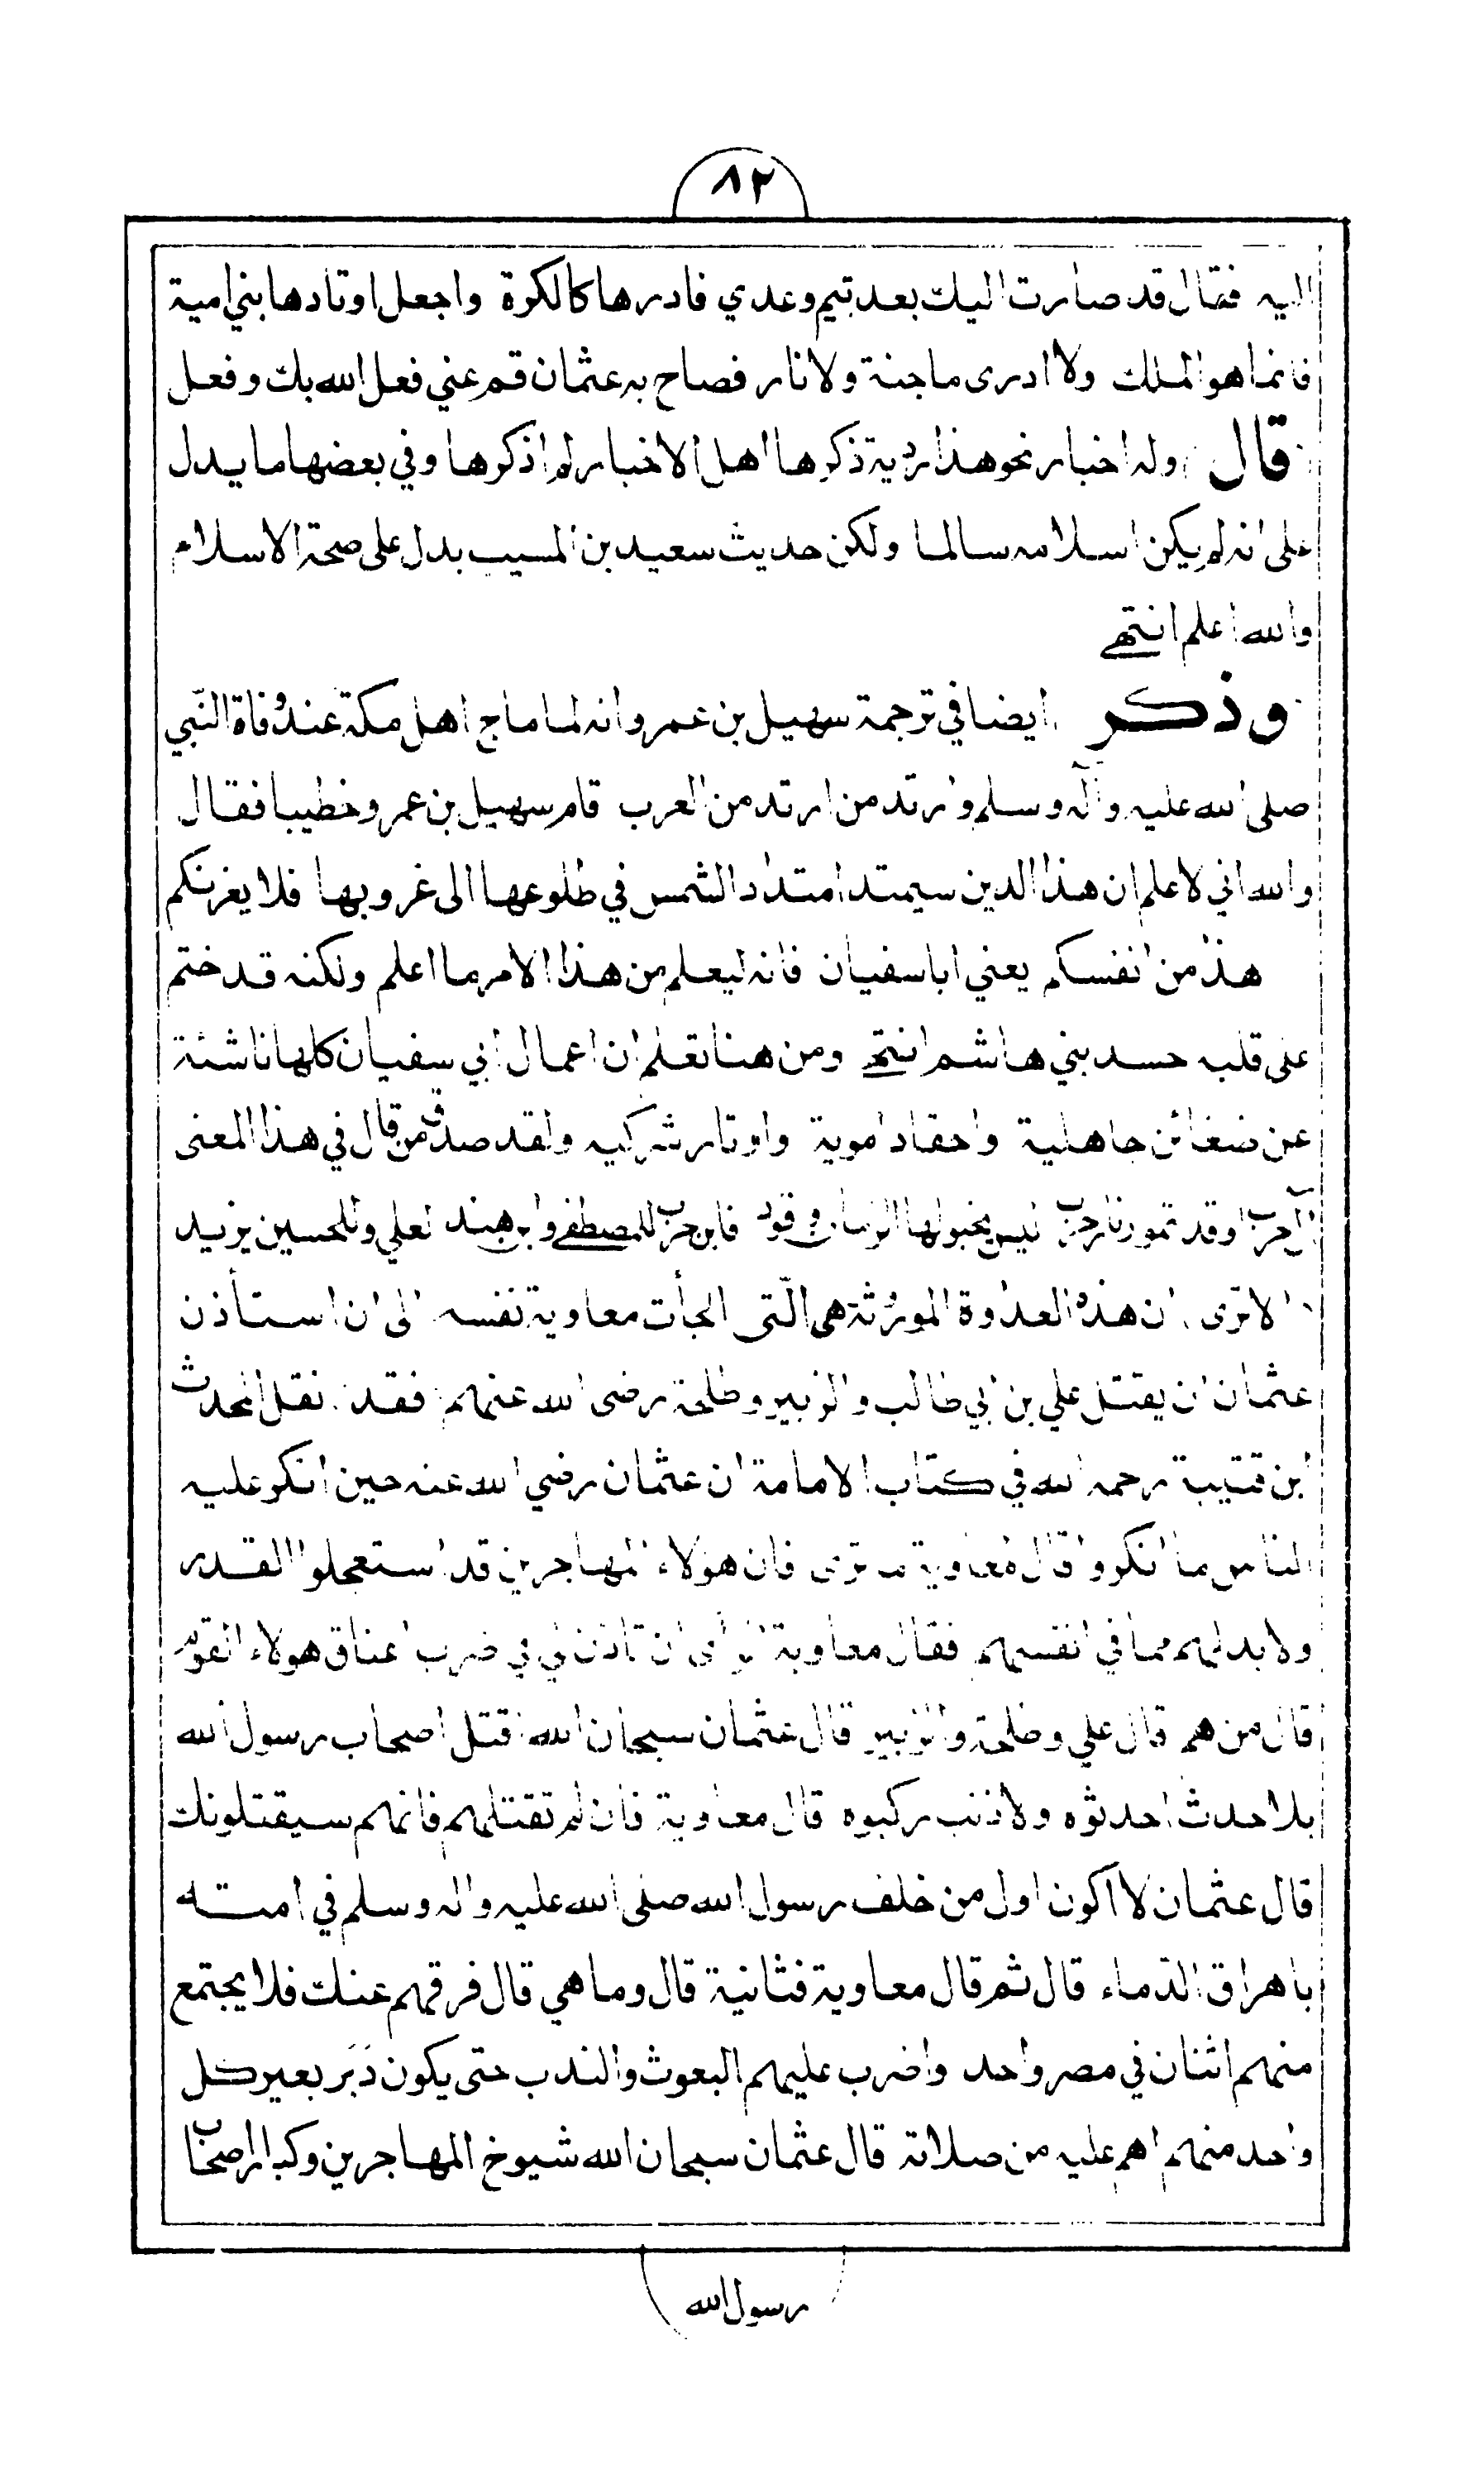 ٨٢
اليه فقال قد صارت اليك بعد تيم وعدي فادرها كالكرة واجعل اوتادها بني امية
فانما هو الملك ولا ادرى ما جنة ولا نار فصاح به عثمان قم عني فعل الله بك وفعل
قال وله اخبار نحو هذا ردية ذكرها اهل الاخبار لم اذكرها وفي بعضها ما يدل
على انه لم يكن اسلامه سالما ولكن حديث سعيد بن المسيب يدل على صحة الاسلام
والله اعلم انتهى
وذكر ايضا في ترجمة سهيل بن عمرو انه لما ماج اهل مكة عند وفاة النّبي
صلى الله عليه وآله وسلم وارتد من ارتد من العرب قام سهيل بن عمرو خطيبا فقال
والله اني لاعلم ان هذا الدين سيمتد امتداد الشمس في طلوعها الى غروبها فلا يغرنكم
هذا من انفسكم يعني ابا سفيان فانه ليعلم من هذا الامر ما اعلم ولكنه قد ختم
على قلبه حسد بني هاشم انتهى ومن هنا تعلم ان اعمال ابي سفيان كلها ناشئة
عن ضغائن جاهلية واحقاد اموية واوتار شركيه ولقد صدق من قال في هذا المعنى
آل حرب اوقدتمو نار حرب ليس يخبو لها الزمان وقود فابن حرب للمصطفى وابن هند لعلي وللحسين يزيد
الا ترى ان هذه العداوة المورثة هي الّتى الجأت معاوية نفسه الى ان استأذن
عثمان ان يقتل علي بن ابي طالب والزبير وطلحة رضى الله عنهم فقد نقل المحدث
ابن قتيبة رحمه الله في كتاب الامامة ان عثمان رضي الله عنه حين انكر عليه
الناس ما انكروا قال لمعاوية ما ترى فان هولاء المهاجرين قد استعجلوا القدر
ولا بد لهم مما في انفسهم فقال معاوية الرأى ان تاذن لي في ضرب اعناق هولاء القوم
قال من هم قال علي وطلحة والزبير قال عثمان سبحان الله اقتل اصحاب رسول الله
بلا حدث احدثوه ولا ذنب ركبوه قال معاوية فان لم تقتلهم فانهم سيقتلونك
قال عثمان لا اكون اول من خلف رسول الله صلى الله عليه واله وسلم في امته
باهراق الدّماء قال ثم قال معاوية فثانية قال وما هي قال فرقهم عنك فلا يجتمع
منهم اثنان في مصر واحد واضرب عليهم البعوث والندب حتى يكون دَبَر بعير كل
واحد منهم اهم عليه من صلاته قال عثمان سبحان الله شيوخ المهاجرين وكبار اصحاب
رسول الله